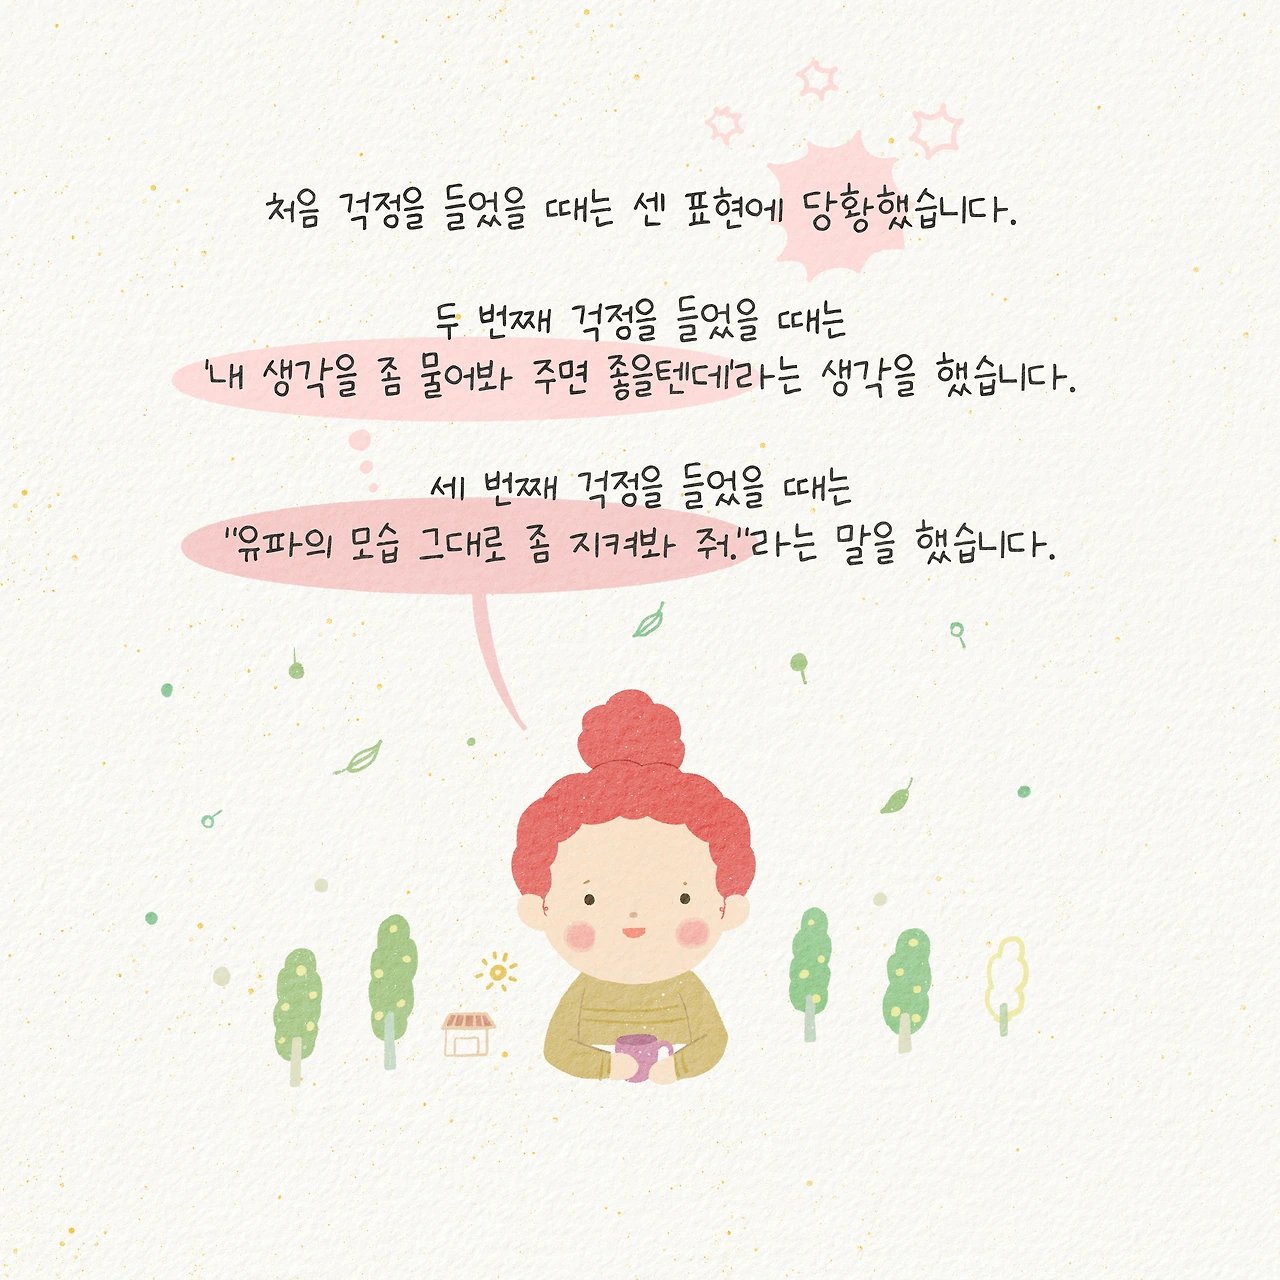 처음 걱정을 들었을 때는 센 표현에 당황했습니다.
두 번째 걱정을 들었을 때는
'내 생각을 좀 물어봐 주면 좋을텐데'라는 생각을 했습니다.
세 번째 걱정을 들었을 때는
"유파의 모습 그대로 좀 지켜봐 줘."라는 말을 했습니다.